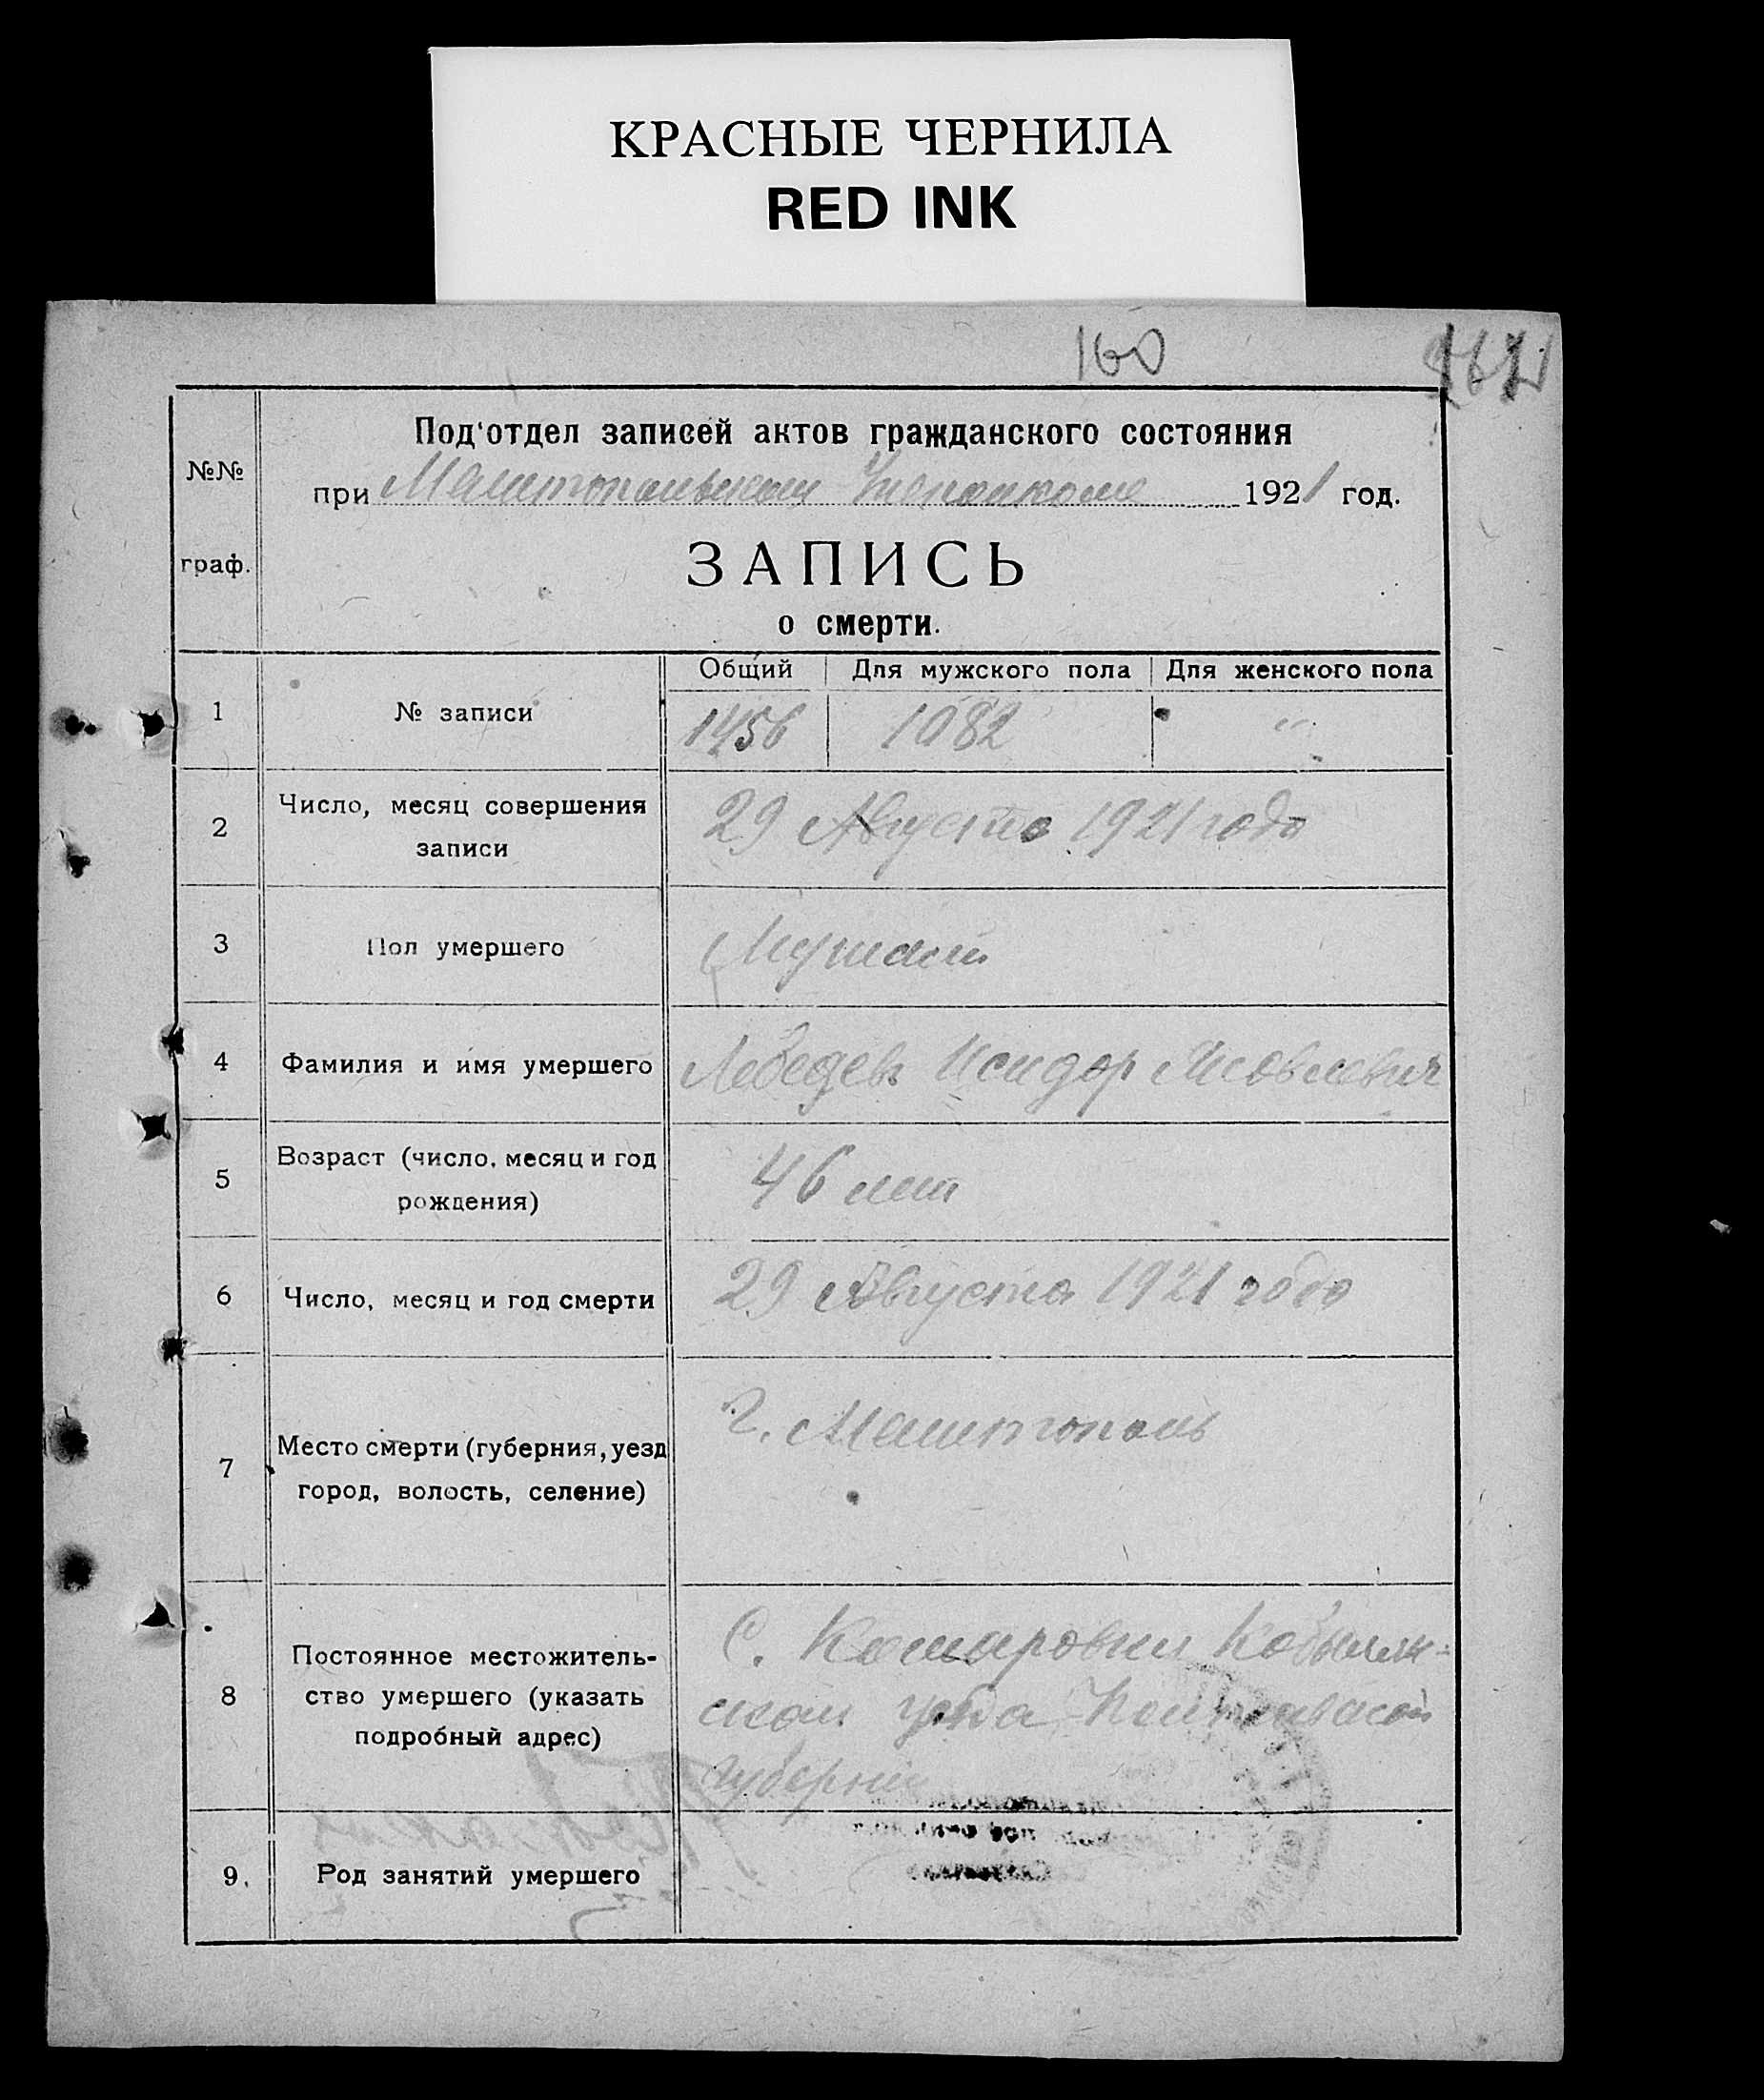 КРАСНЫЕ ЧЕРНИЛА
RED INK
160
Под'отдел записей актов гражданского состояния
№№
при Мелитопольском 1921 год.
граф.
ЗАПИСЬ
о смерти.
Общий Для мужского пола Для женского пола
1 № записи 1456 1082 "
2 Число, месяц совершения записи 29 Августа 1921 года
3 Пол умершего Мужской
4 Фамилия и имя умершего Лебедев Исидор Яковлевич
5 Возраст (число, месяц и год рождения) 46 лет
6 Число, месяц и год смерти 29 Августа 1921 года
7 Место смерти (губерния, уезд город, волость, селение) г. Мелитополь
8 Постоянное местожитель-
ство умершего (указать
подробный адрес)
С. Комаровки
губернии
9. Род занятий умершего